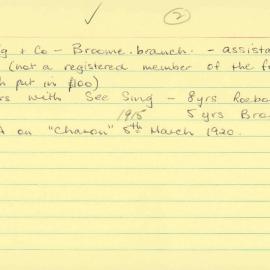 ②
g + Co - Broome branch - assista
(not a registered member of the f
h put in £100)
rs with See Sing - 8yrs Roebo
1915 5 yrs Bro
A on "Charon" 8th March 1920.